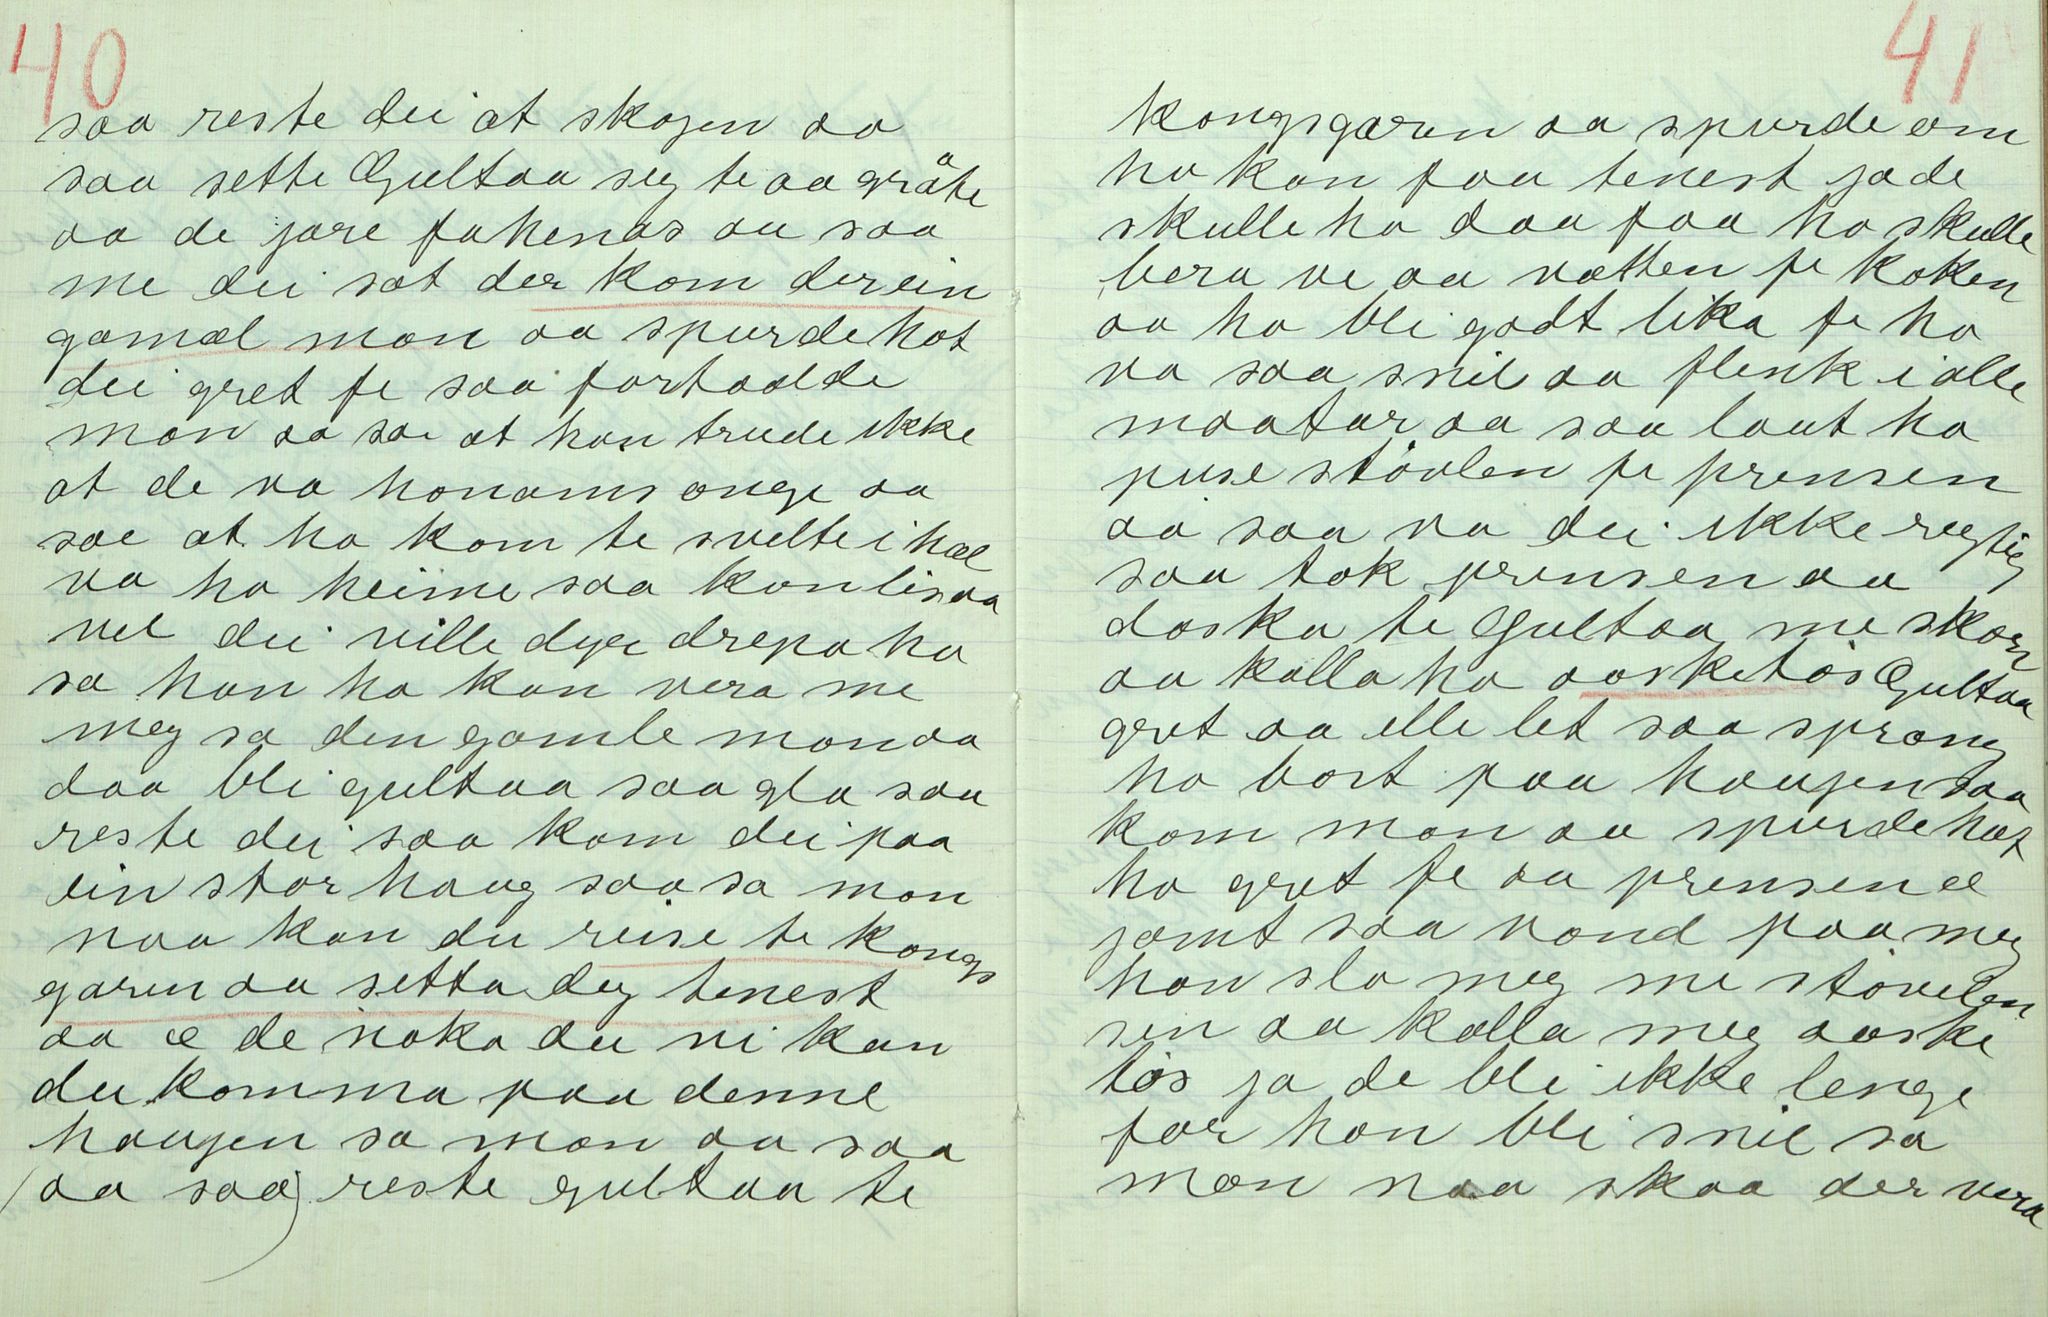 40
saa reste dei at skogen aa
saa sette Gultaa seg te aa gråte
aa de jore fahenas aa saa
me dei sat der kom der ein
gamal man aa spurde hot
dei gret fe saa fortaalde
man aa sae at han trude ikke
at de va honams onge aa
sae at ho kom te svelte i hæl
va ho heime saa kon lisaa
vel dei ville dyre drepa ho
sa han ho kan vera me
meg sa den gamle man aa
daa blei gultaa saa gla saa
reste dei saa kom dei paa
ein stor haug saa sa man
naa kan du reise te kongs
garen aa setta deg tenest
aa æ de noka du vi kan
du komma paa denne
haugen sa man aa saa
(aa saa) reste gultaa te
41
kongsgaren aa spurde om
ho kan faa tenest ja de
skulle ho daa faa ho skulle
bera ve aa vatten fe koken
aa ho blei godt lika fe ho
va saa snil aa flink i alle
maatar aa saa laut ho
puse stövlen fe prensen
aa saa va dei ikke regtig
saa tok prensen aa
daska te Gultaa me skoen
aa kalla ho aasketös Gultaa
gret aa ille let saa sprang
ho bort paa haugen saa
kom man aa spurde hot
ho gret fe aa prensen æ
jamt saa vond paa meg
han sla meg me stövelen
sen aa kalla meg aaske
tös ja de bli ikke lenge
for han bli snil sa
man naa skaa der vera